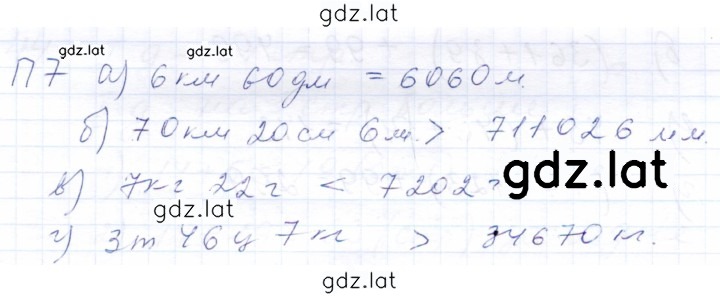 gdz.lat
gdz.lat gdz.lat
П7 а) 6 км 60 дм = 6060 м.
б) 70 км 20 см 6 м. > 711026 мм.
в) 7 кг 22 г < 7202 г gdz.lat
gdz.lat
г) 3 т 46 ц 7 кг > 34670 кг.
gdz.lat